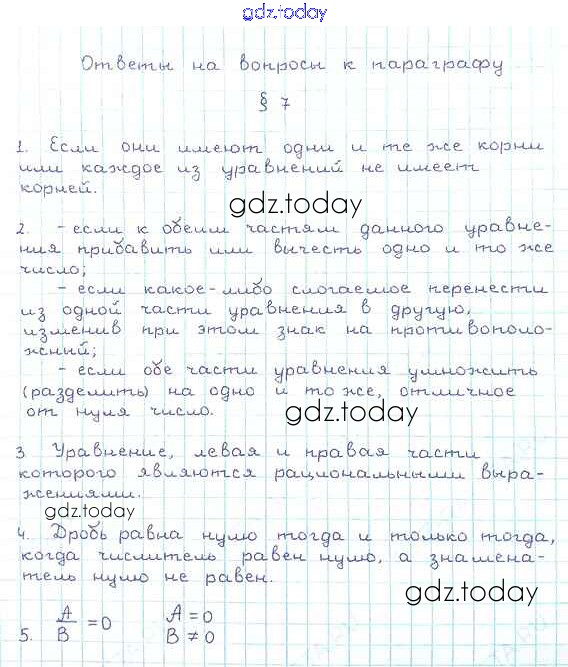 gdz.today
Ответы на вопросы к параграфу
§ 7
1. Если они имеют одни и те же корни
или каждое из уравнений не имеет
корней.
gdz.today
2. - если к обеим частям данного уравне-
ния прибавить или вычесть одно и то же
число;
- если какое-либо слогаемое перенести
из одной части уравнения в другую,
изменив при этом знак на противополо-
жный;
- если обе части уравнения умножить
(разделить) на одно и то же, отличное
от нуля число.
gdz.today
3. Уравнение, левая и правая части
которого являются рациональными выра-
жениями.
gdz.today
4. Дробь равна нулю тогда и только тогда,
когда числитель равен нулю, а знамена-
тель нулю не равен.
gdz.today
5. A/B = 0 A = 0
B ≠ 0